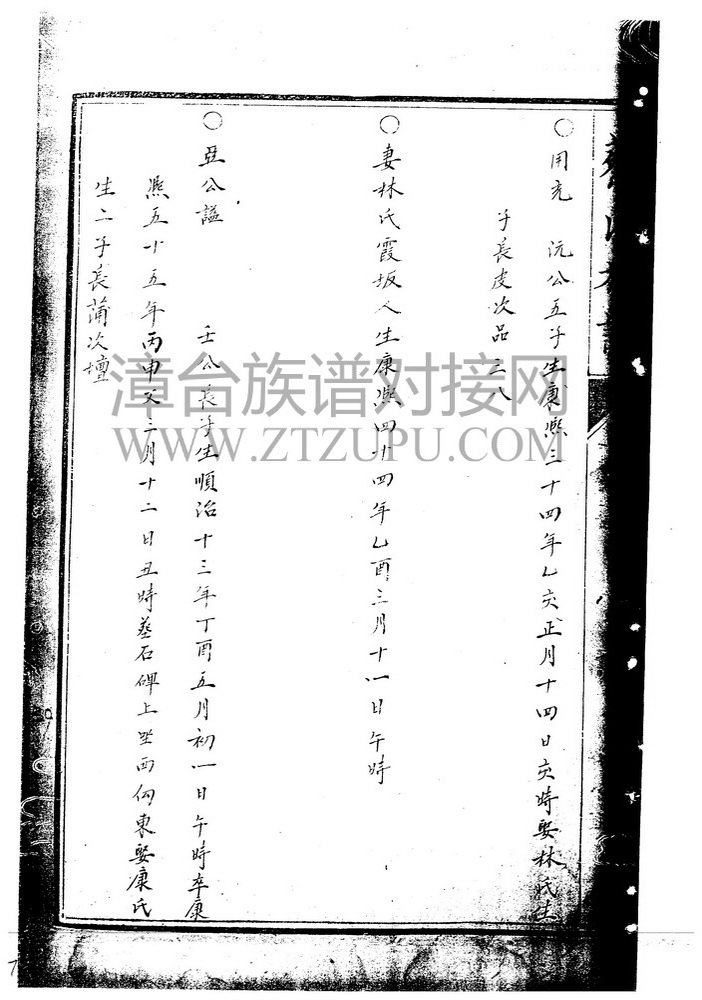 ○用克 沅公五子生康熙三十四年乙亥正月十四日亥時娶林氏生
子長皮次品三八
○妻林氏霞坂人生康熙四十四年乙酉三月十一日午時
○亞公諡 壬公長子生順治十三年丁酉五月初一日午時卒康
熙五十五年丙申又三月十二日丑時墓石碑上坐西向東娶康氏
生二子長蒲次壇
漳台族谱对接网
WWW.ZTZUPU.COM